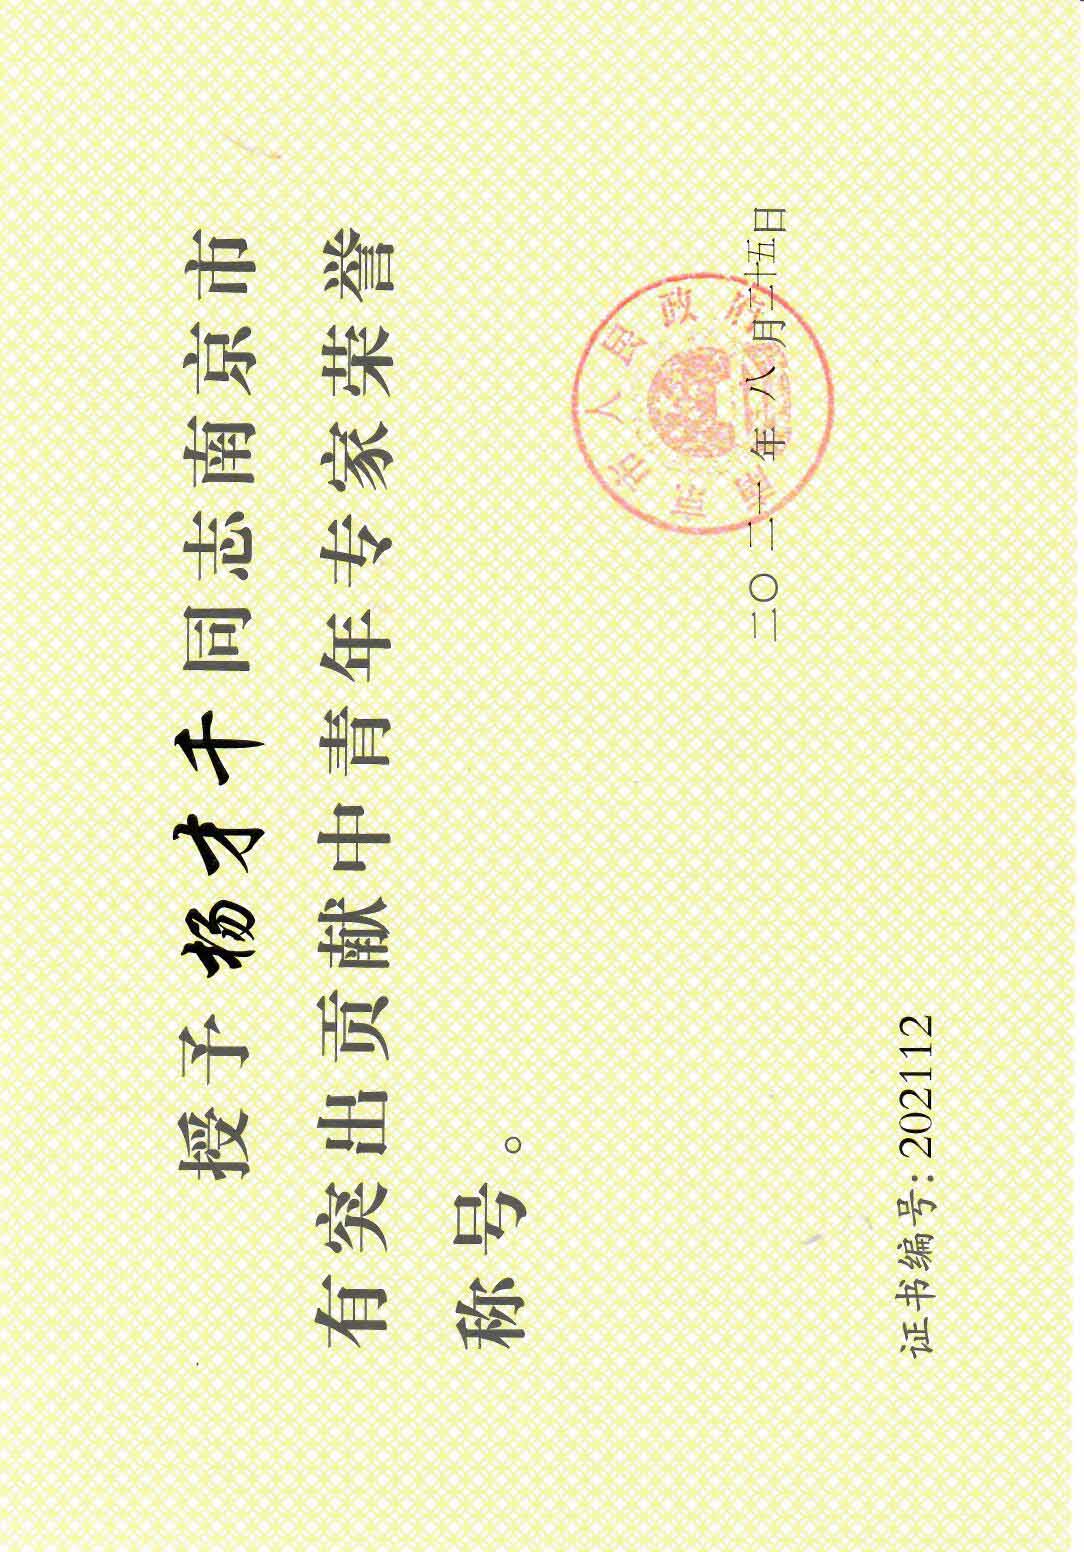 授予杨才千同志南京市
有突出贡献中青年专家荣誉
称号。
南京市人民政府
二〇二一年八月二十五日
证书编号：202112